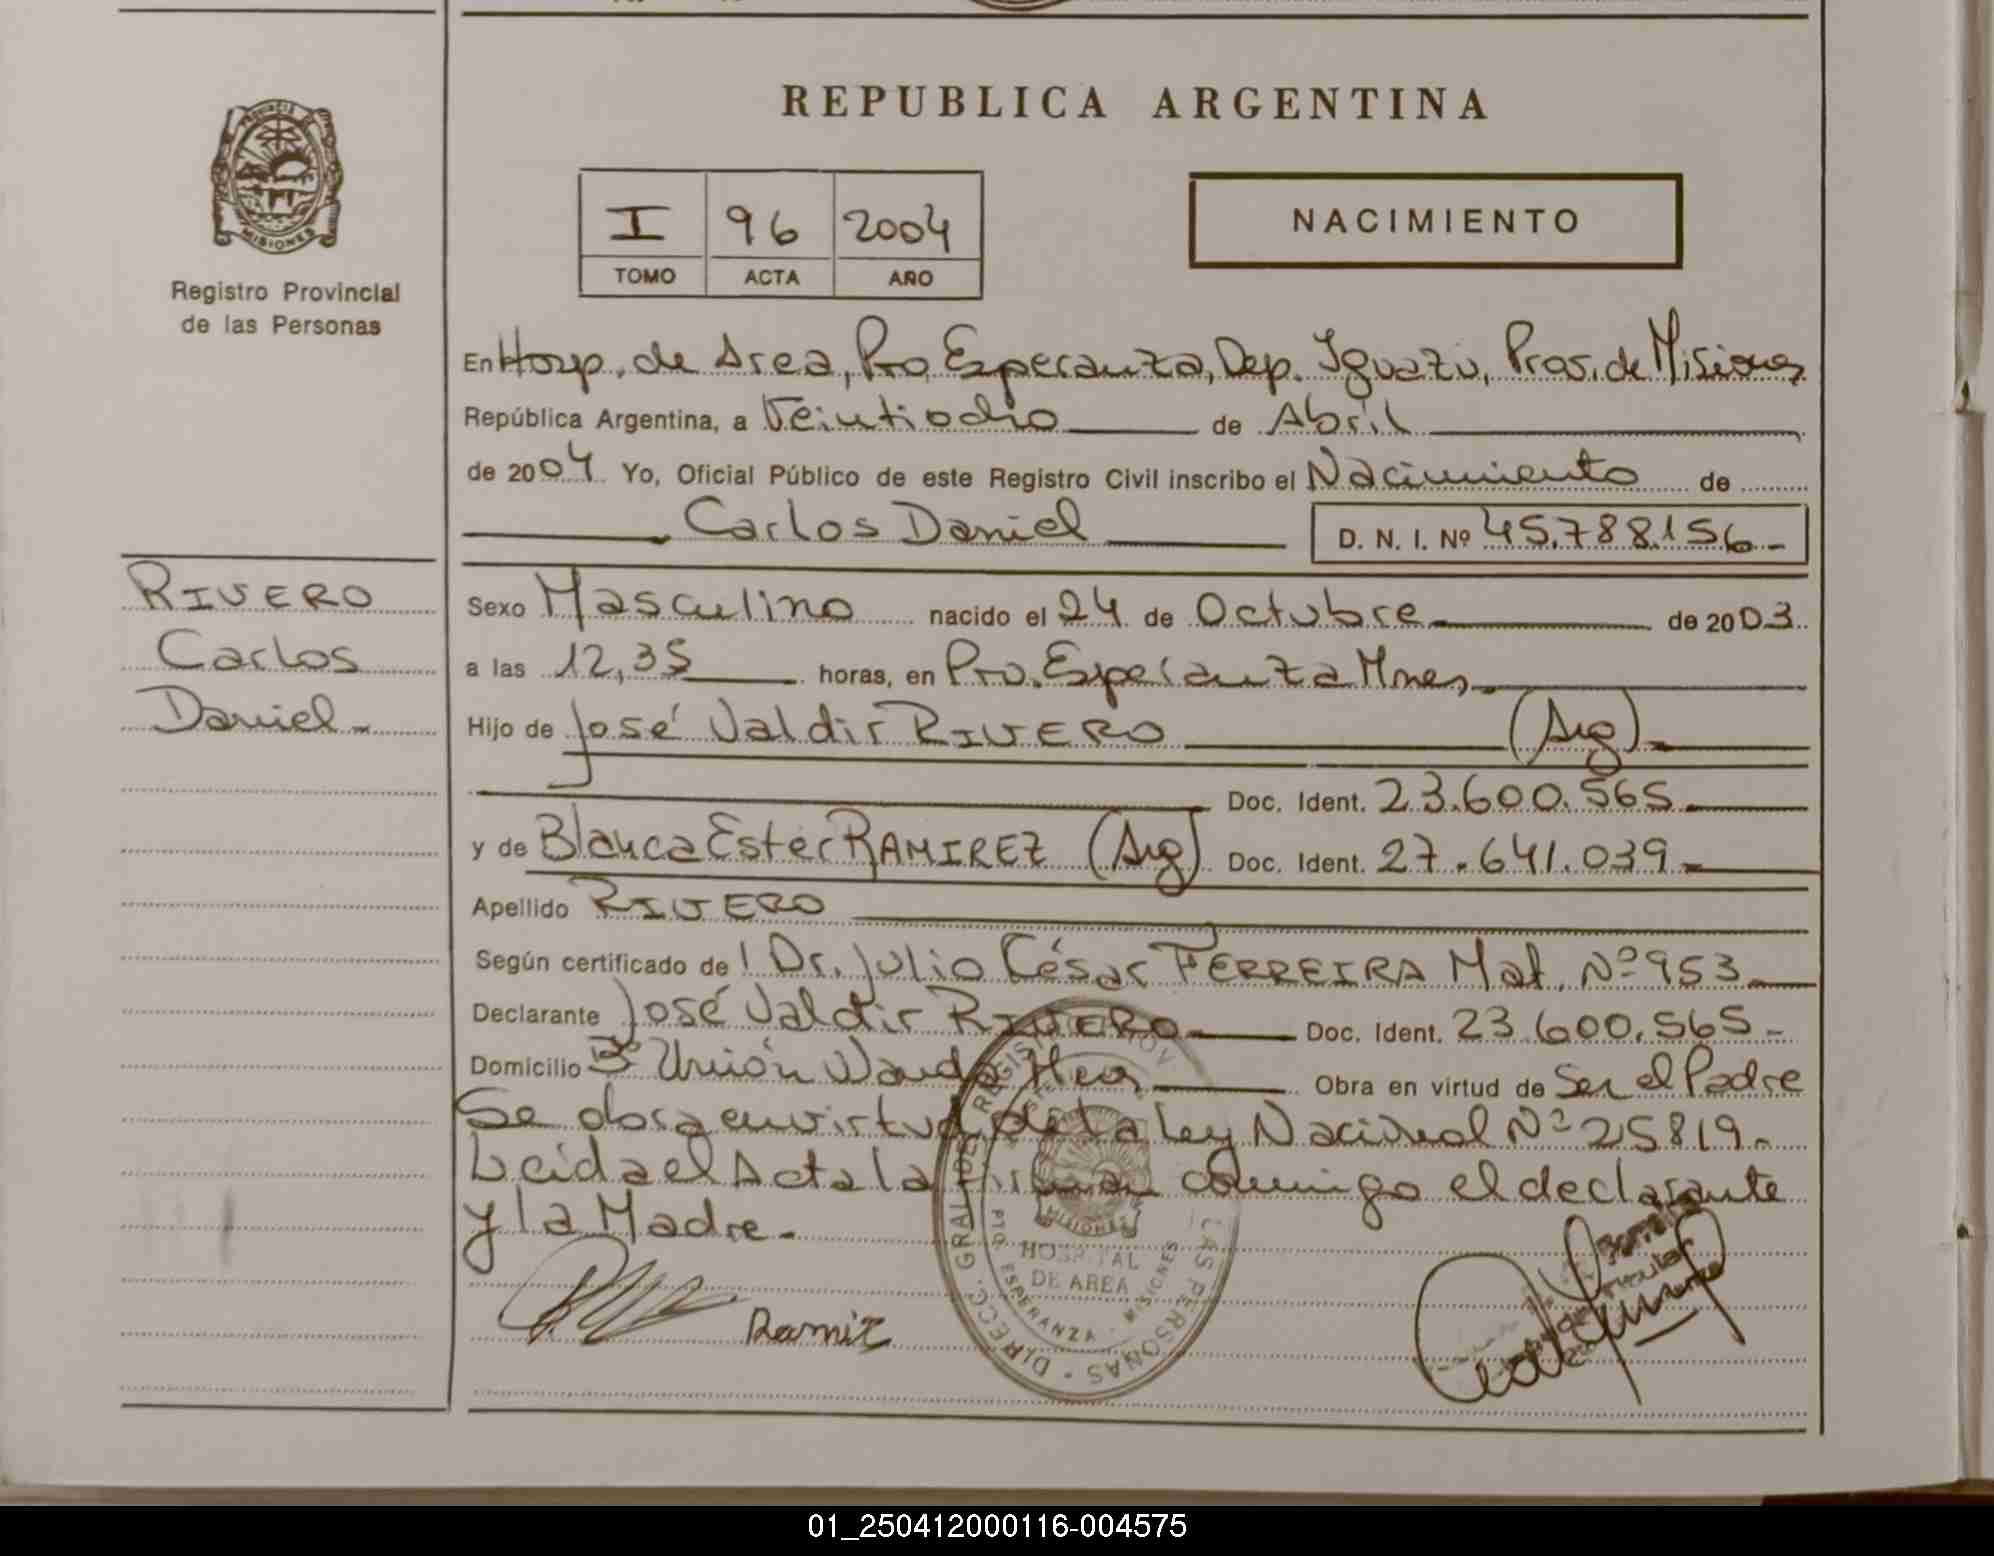 REPUBLICA ARGENTINA
PROVINCIA DE
MISIONES
Registro Provincial
de las Personas
I 96 2004
TOMO ACTA AÑO
NACIMIENTO
En Hosp. de Area, Pto Esperanza, Dep. Iguazu, Prov. de Misiones
República Argentina, a Veintiocho de Abril
de 2004 Yo, Oficial Público de este Registro Civil inscribo el Nacimiento de
Carlos Daniel D. N. I. Nº 45.788.156-
RIVERO
Carlos
Daniel-
Sexo Masculino nacido el 24 de Octubre de 2003
a las 12,35 horas, en Pto. Esperanza Mnes
Hijo de José Valdir RIVERO (Arg)
Doc. Ident. 23.600.565
y de Blanca Ester RAMIREZ (Arg) Doc. Ident. 27.641.039
Apellido RIVERO
Según certificado de Dr. Julio César FERREIRA Mat. Nº 953
Declarante José Valdir RIVERO Doc. Ident. 23.600.565-
Domicilio Bº Unión Wanda Obra en virtud de Ser el Padre
Se obra en virtud de la Ley Nacional Nº 25819-
Leida el Acta la firman conmigo el declarante
y la Madre.-
Ramirz
DIRECC. GRAL DEL REGISTRO PROV LAS PERSONAS
HOSPITAL
DE AREA
PTO. ESPERANZA - MISIONES
MISIONES
01_250412000116-004575